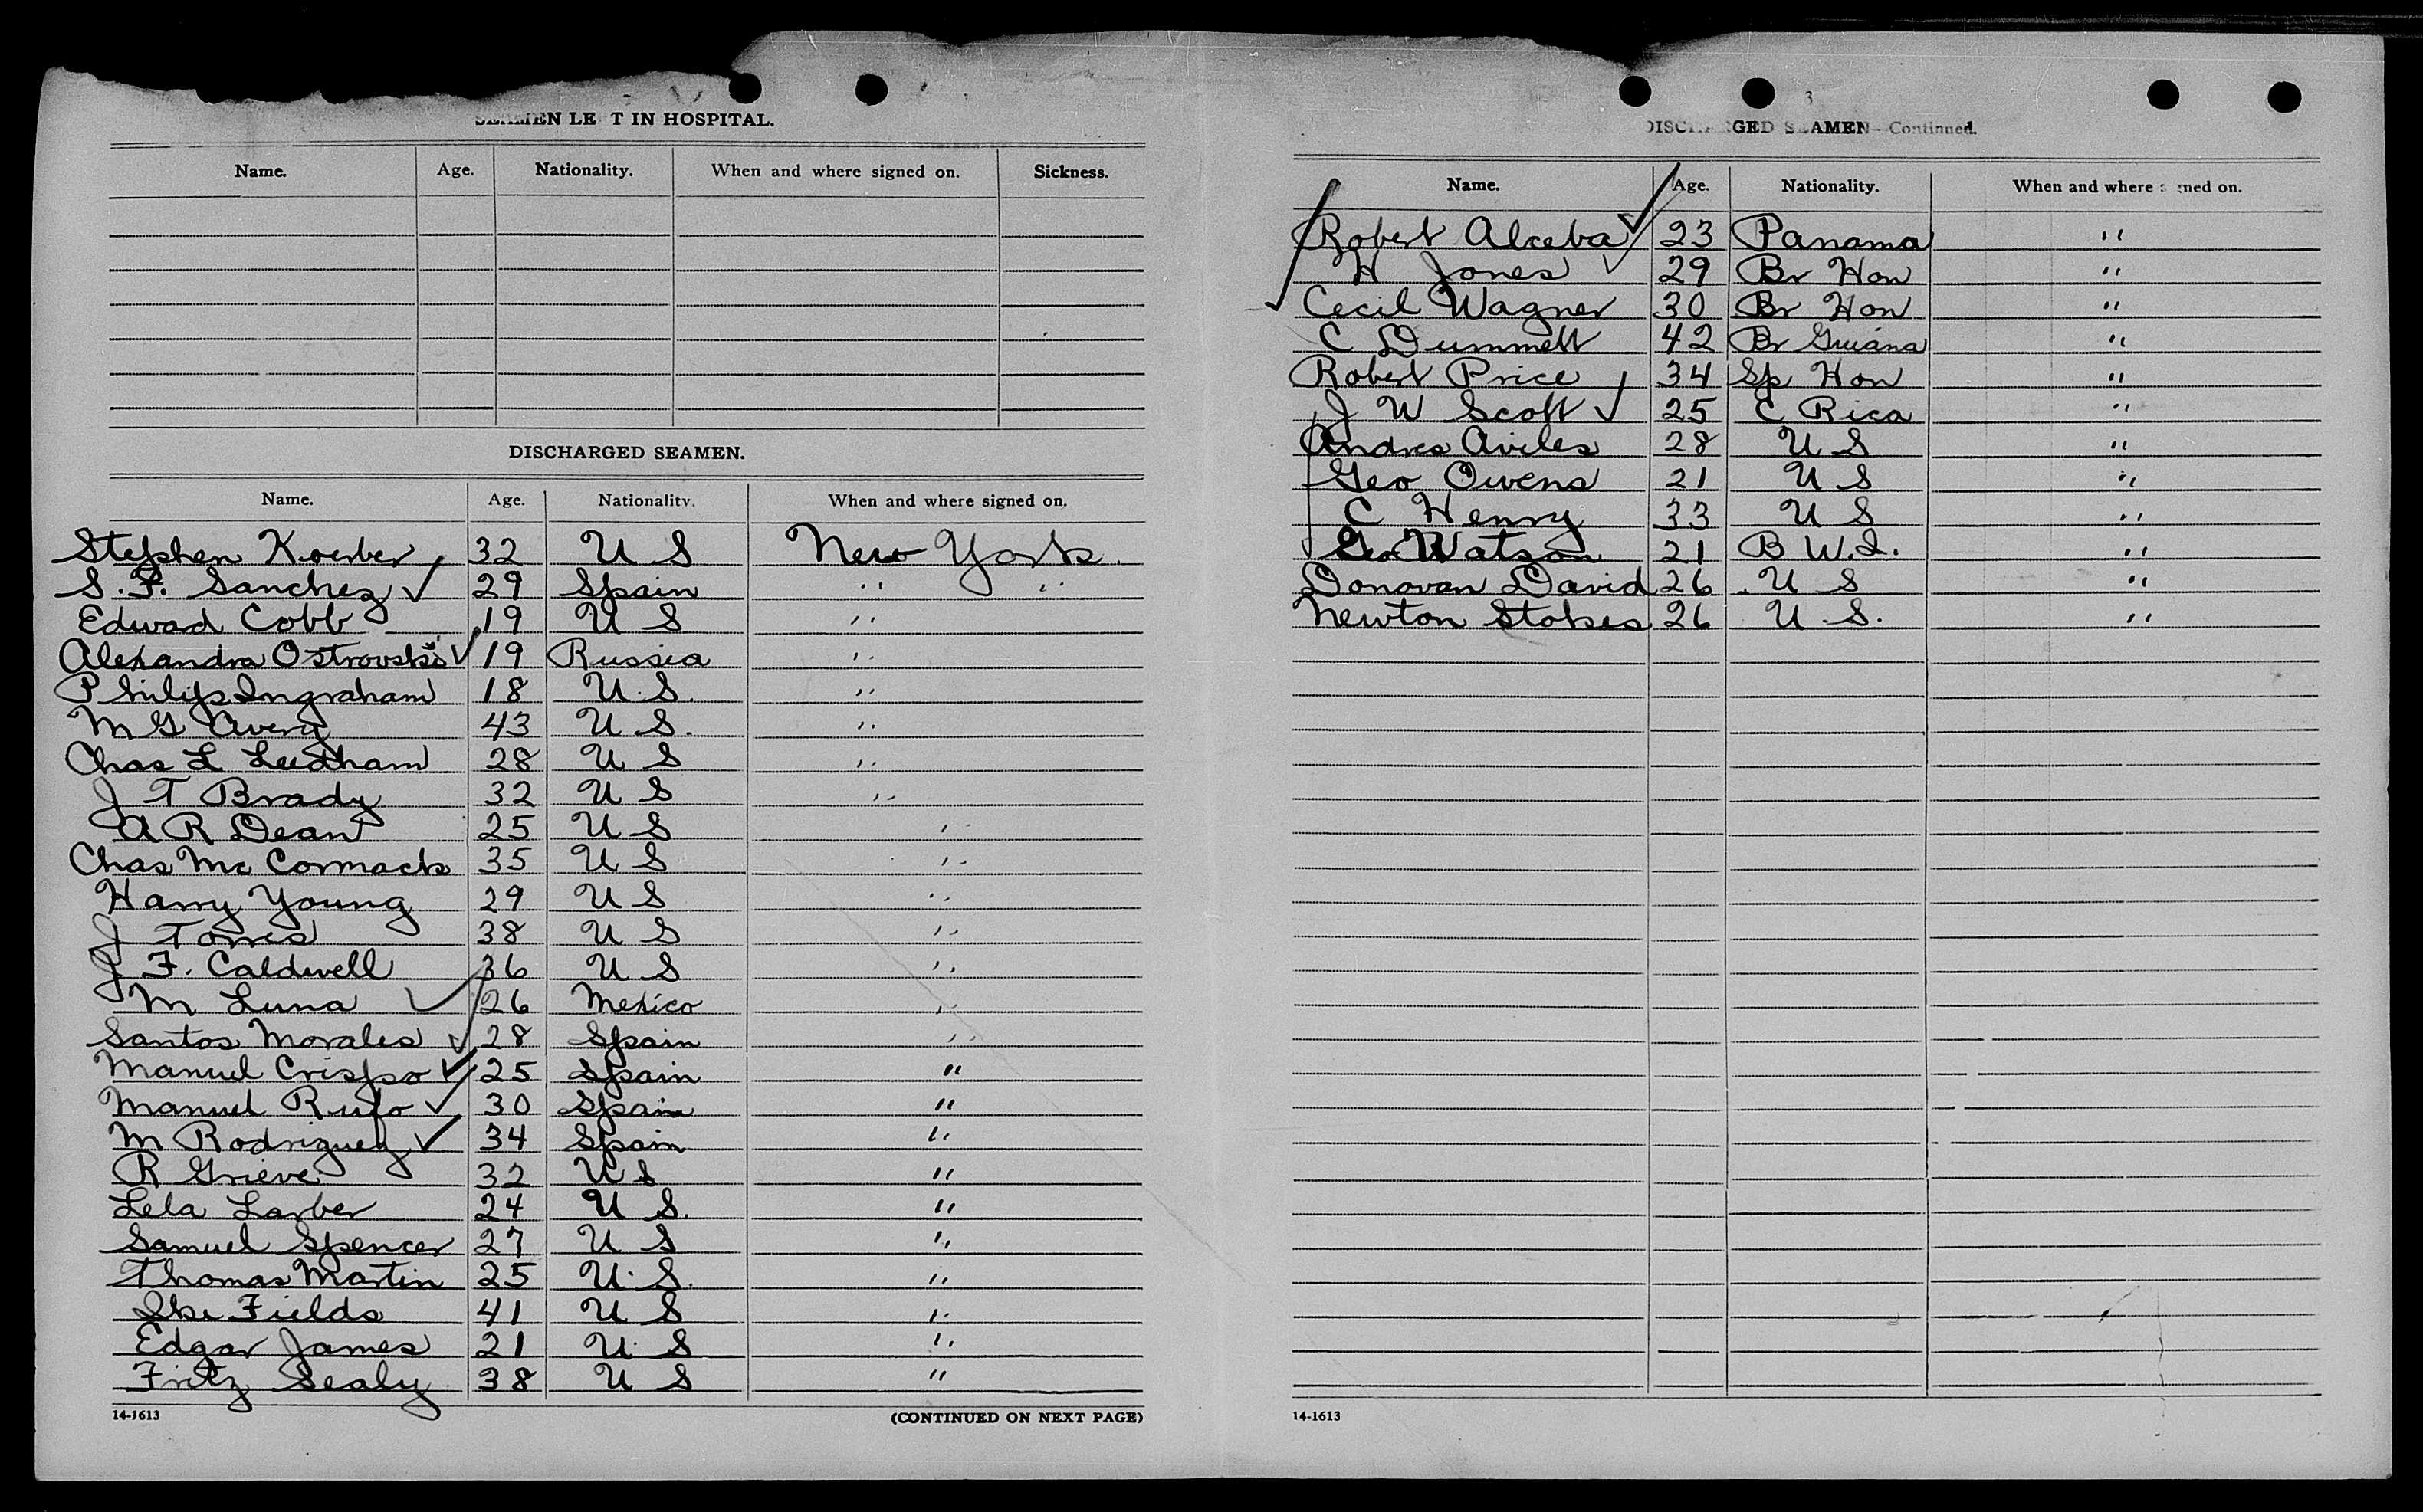 SEAMEN LEFT IN HOSPITAL.
Name. Age. Nationality. When and where signed on. Sickness.
DISCHARGED SEAMEN.
Name. Age. Nationality. When and where signed on.
Stephen Koerber 32 U S New York.
S. F. Sanchez ✓ 29 Spain " "
Edward Cobb 19 U S "
Alexandra Ostrovski ✓ 19 Russia "
Philip Ingraham 18 U.S. "
M G Avery 43 U S. "
Chas L Leetham 28 U S "
J T Brady 32 U S "
A R Dean 25 U S "
Chas Mc Cormack 35 U S "
Harry Young 29 U S "
J Torres 38 U S "
J F. Caldwell 36 U S "
M Luna ✓ 26 Mexico "
Santos Morales ✓ 28 Spain "
Manuel Crispo ✓ 25 Spain "
Manuel Rufo ✓ 30 Spain "
M Rodriguez ✓ 34 Spain "
R Grieve 32 U S "
Lela Larber 24 U S. "
Samuel Spencer 27 U S "
Thomas Martin 25 U. S. "
Ike Fields 41 U S "
Edgar James 21 U. S "
Fritz Sealy 38 U S "
14-1613 (CONTINUED ON NEXT PAGE)
3
DISCHARGED SEAMEN—Continued.
Name. Age. Nationality. When and where signed on.
Robert Alceba ✓ 23 Panama "
H Jones ✓ 29 Br Hon "
Cecil Wagner 30 Br Hon "
C Dummett 42 Br Guiana "
Robert Price 34 Sp Hon "
J W Scott ✓ 25 C Rica "
Andres Aviles 28 U S "
Geo Owens 21 U S "
C Henry 33 U S "
Geo Watson 21 B W.I. "
Donovan David 26 U S "
Newton Stokes 26 U S. "
14-1613